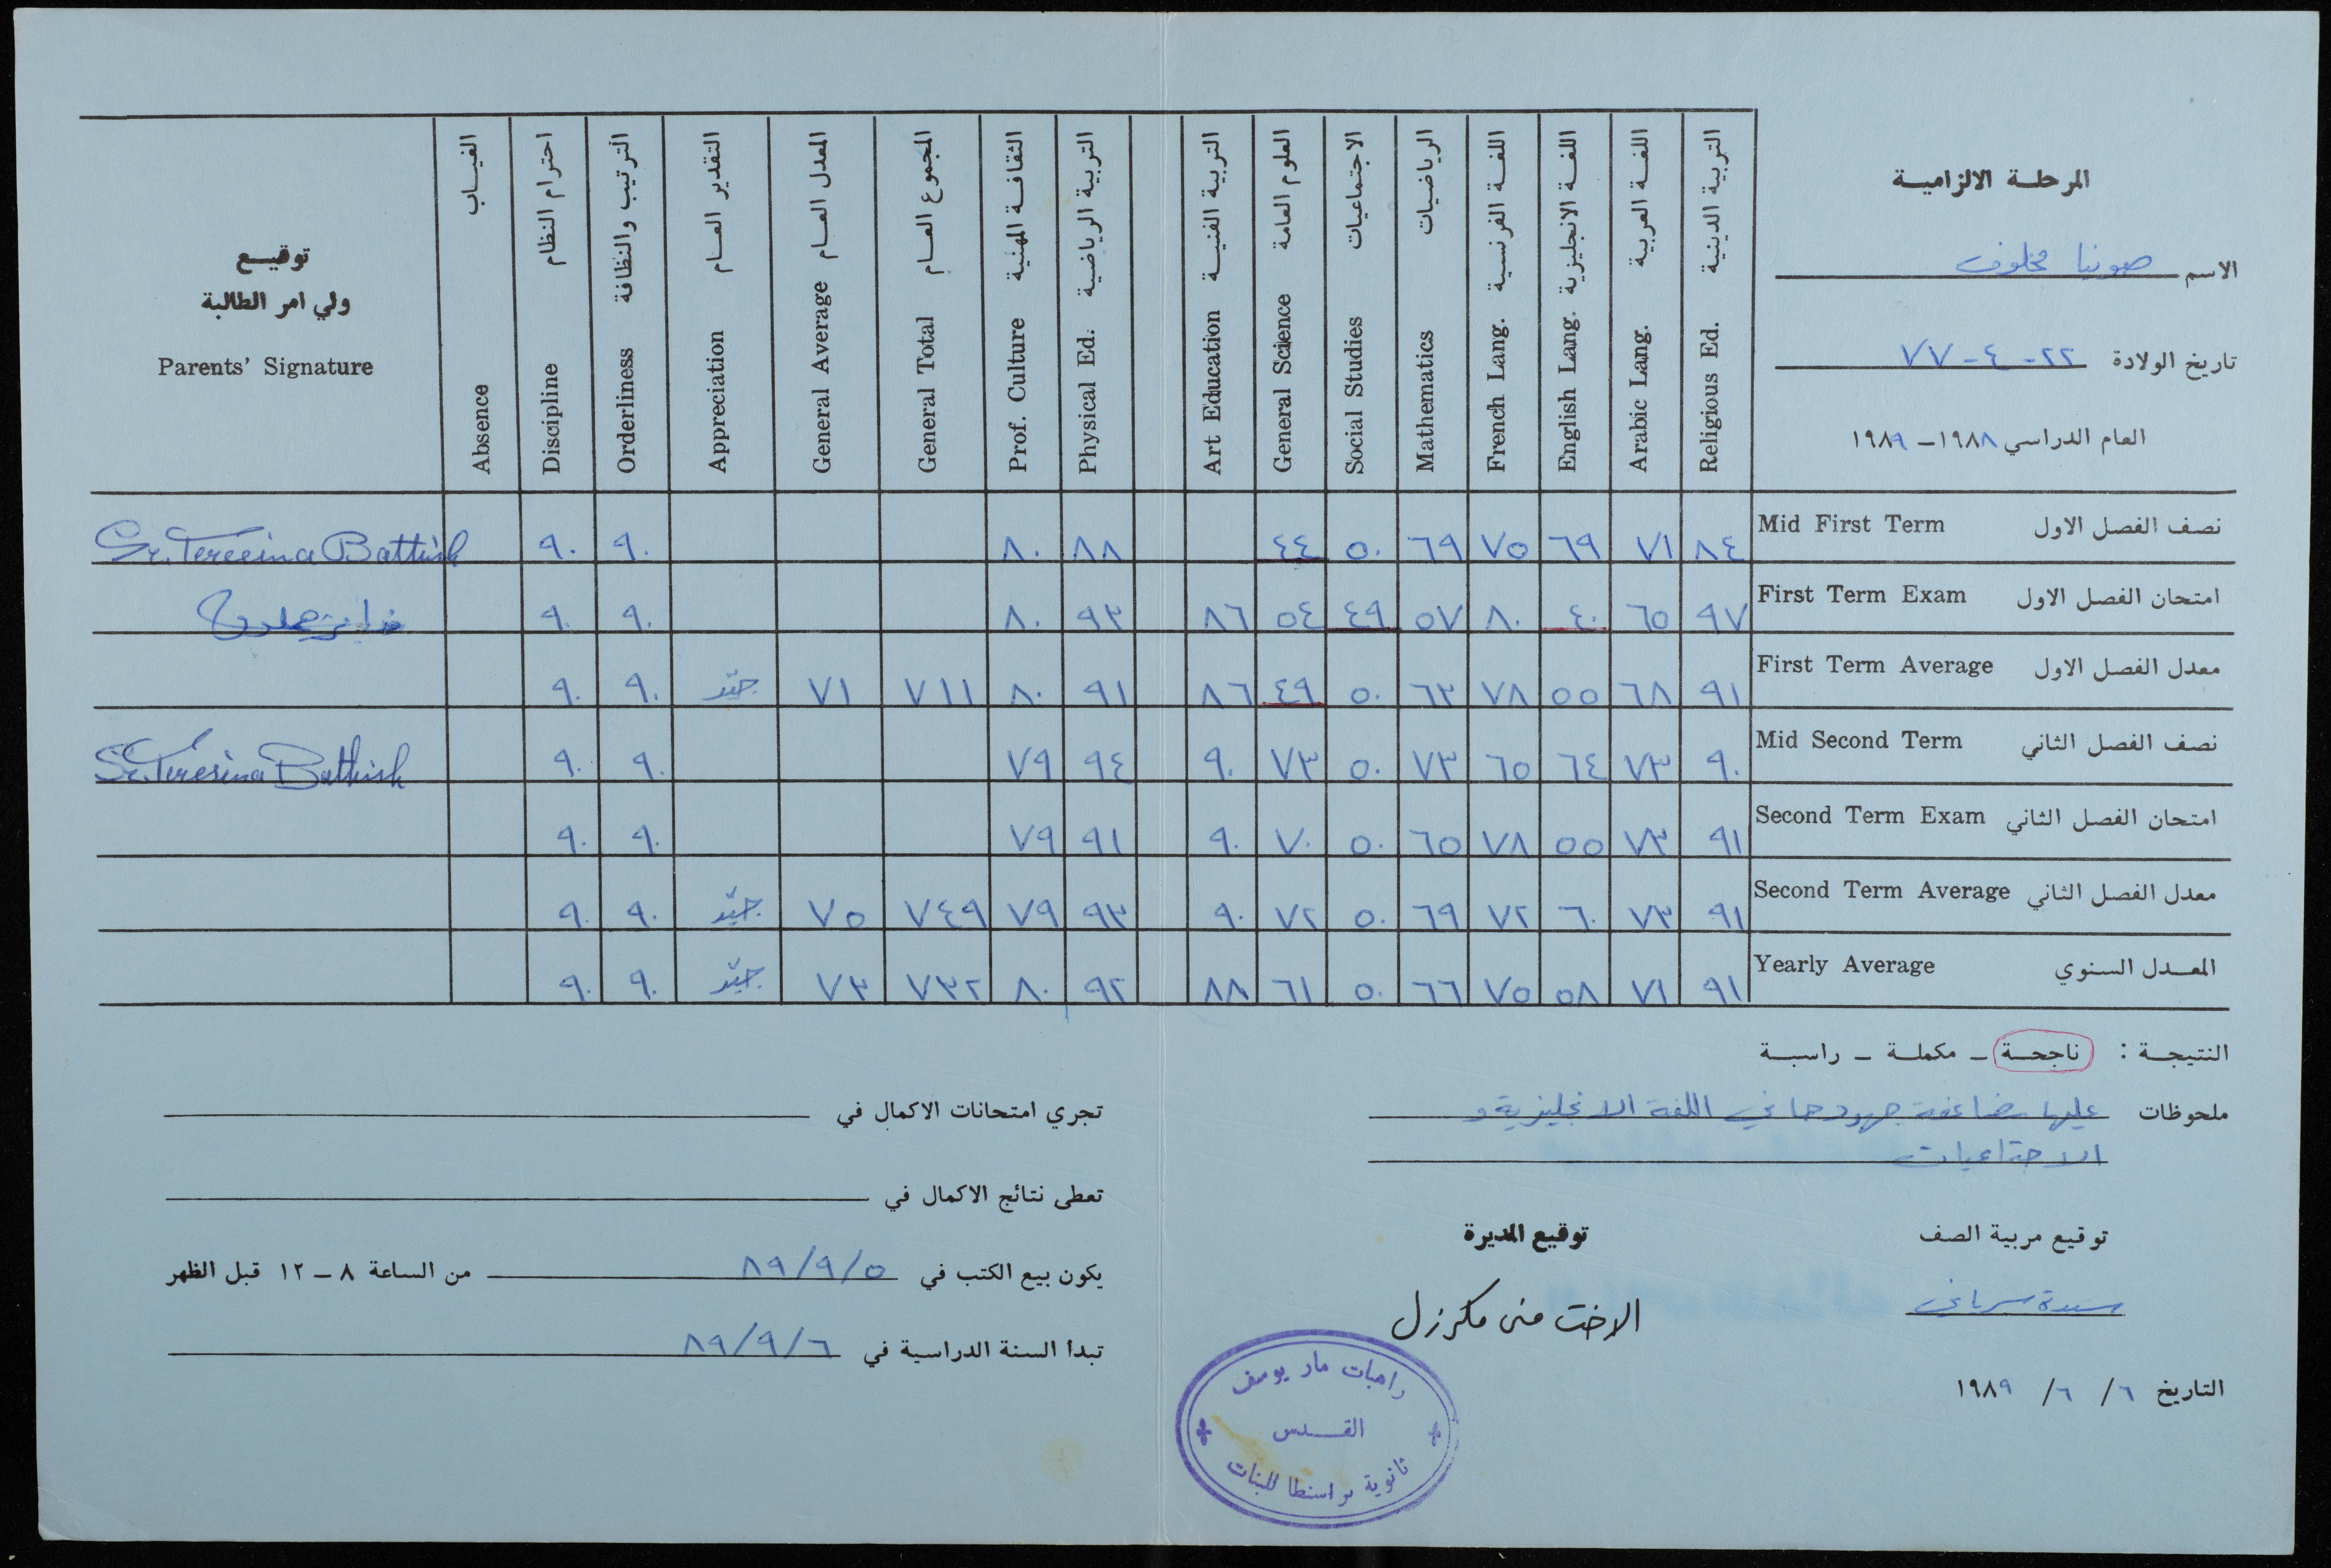 المرحلة الالزامية
الاسم صونيا مخلوف
تاريخ الولادة ٢٢-٤-٧٧
العام الدراسي ١٩٨٨ – ١٩٨٩
التربية الدينية Religious Ed.
اللغة العربية Arabic Lang.
اللغة الانجليزية English Lang.
اللغة الفرنسية French Lang.
الرياضيات Mathematics
الاجتماعيات Social Studies
العلوم العامة General Science
التربية الفنية Art Education
التربية الرياضية Physical Ed.
الثقافة المهنية Prof. Culture
المجموع العام General Total
المعدل العام General Average
التقدير العام Appreciation
الترتيب والنظافة Orderliness
احترام النظام Discipline
الغياب Absence
توقيع
ولي امر الطالبة
Parents' Signature
نصف الفصل الاول Mid First Term ٨٤ ٧١ ٦٩ ٧٥ ٦٩ ٥٠ ٤٤ ٨٨ ٨٠ ٩٠ ٩٠ Sr. Teresina Battish
امتحان الفصل الاول First Term Exam ٩٧ ٦٥ ٤٠ ٨٠ ٥٧ ٤٩ ٥٤ ٨٦ ٩٣ ٨٠ ٩٠ ٩٠
معدل الفصل الاول First Term Average ٩١ ٦٨ ٥٥ ٧٨ ٦٣ ٥٠ ٤٩ ٨٦ ٩١ ٨٠ ٧١١ ٧١ جيّد ٩٠ ٩٠
نصف الفصل الثاني Mid Second Term ٩٠ ٧٣ ٦٤ ٦٥ ٧٣ ٥٠ ٧٣ ٩٠ ٩٤ ٧٩ ٩٠ ٩٠ Sr. Teresina Battish
امتحان الفصل الثاني Second Term Exam ٩١ ٧٣ ٥٥ ٧٨ ٦٥ ٥٠ ٧٠ ٩٠ ٩١ ٧٩ ٩٠ ٩٠
معدل الفصل الثاني Second Term Average ٩١ ٧٣ ٦٠ ٧٢ ٦٩ ٥٠ ٧٢ ٩٠ ٩٣ ٧٩ ٧٤٩ ٧٥ جيّد ٩٠ ٩٠
المعدل السنوي Yearly Average ٩١ ٧١ ٥٨ ٧٥ ٦٦ ٥٠ ٦١ ٨٨ ٩٢ ٨٠ ٧٣٢ ٧٣ جيّد ٩٠ ٩٠
النتيجة : ناجحة – مكملة – راسبة
ملحوظات عليها مضاعفة جهودها في اللغة الانجليزية و
الاجتماعيات
توقيع مربية الصف
توقيع المديرة
الاخت منى مكرزل
التاريخ ٦ / ٦ / ١٩٨٩
راهبات مار يوسف
القدس
ثانوية براسنطا للبنات
تجري امتحانات الاكمال في
تعطى نتائج الاكمال في
يكون بيع الكتب في ٨٩/٩/٥ من الساعة ٨ – ١٢ قبل الظهر
تبدا السنة الدراسية في ٨٩/٩/٦